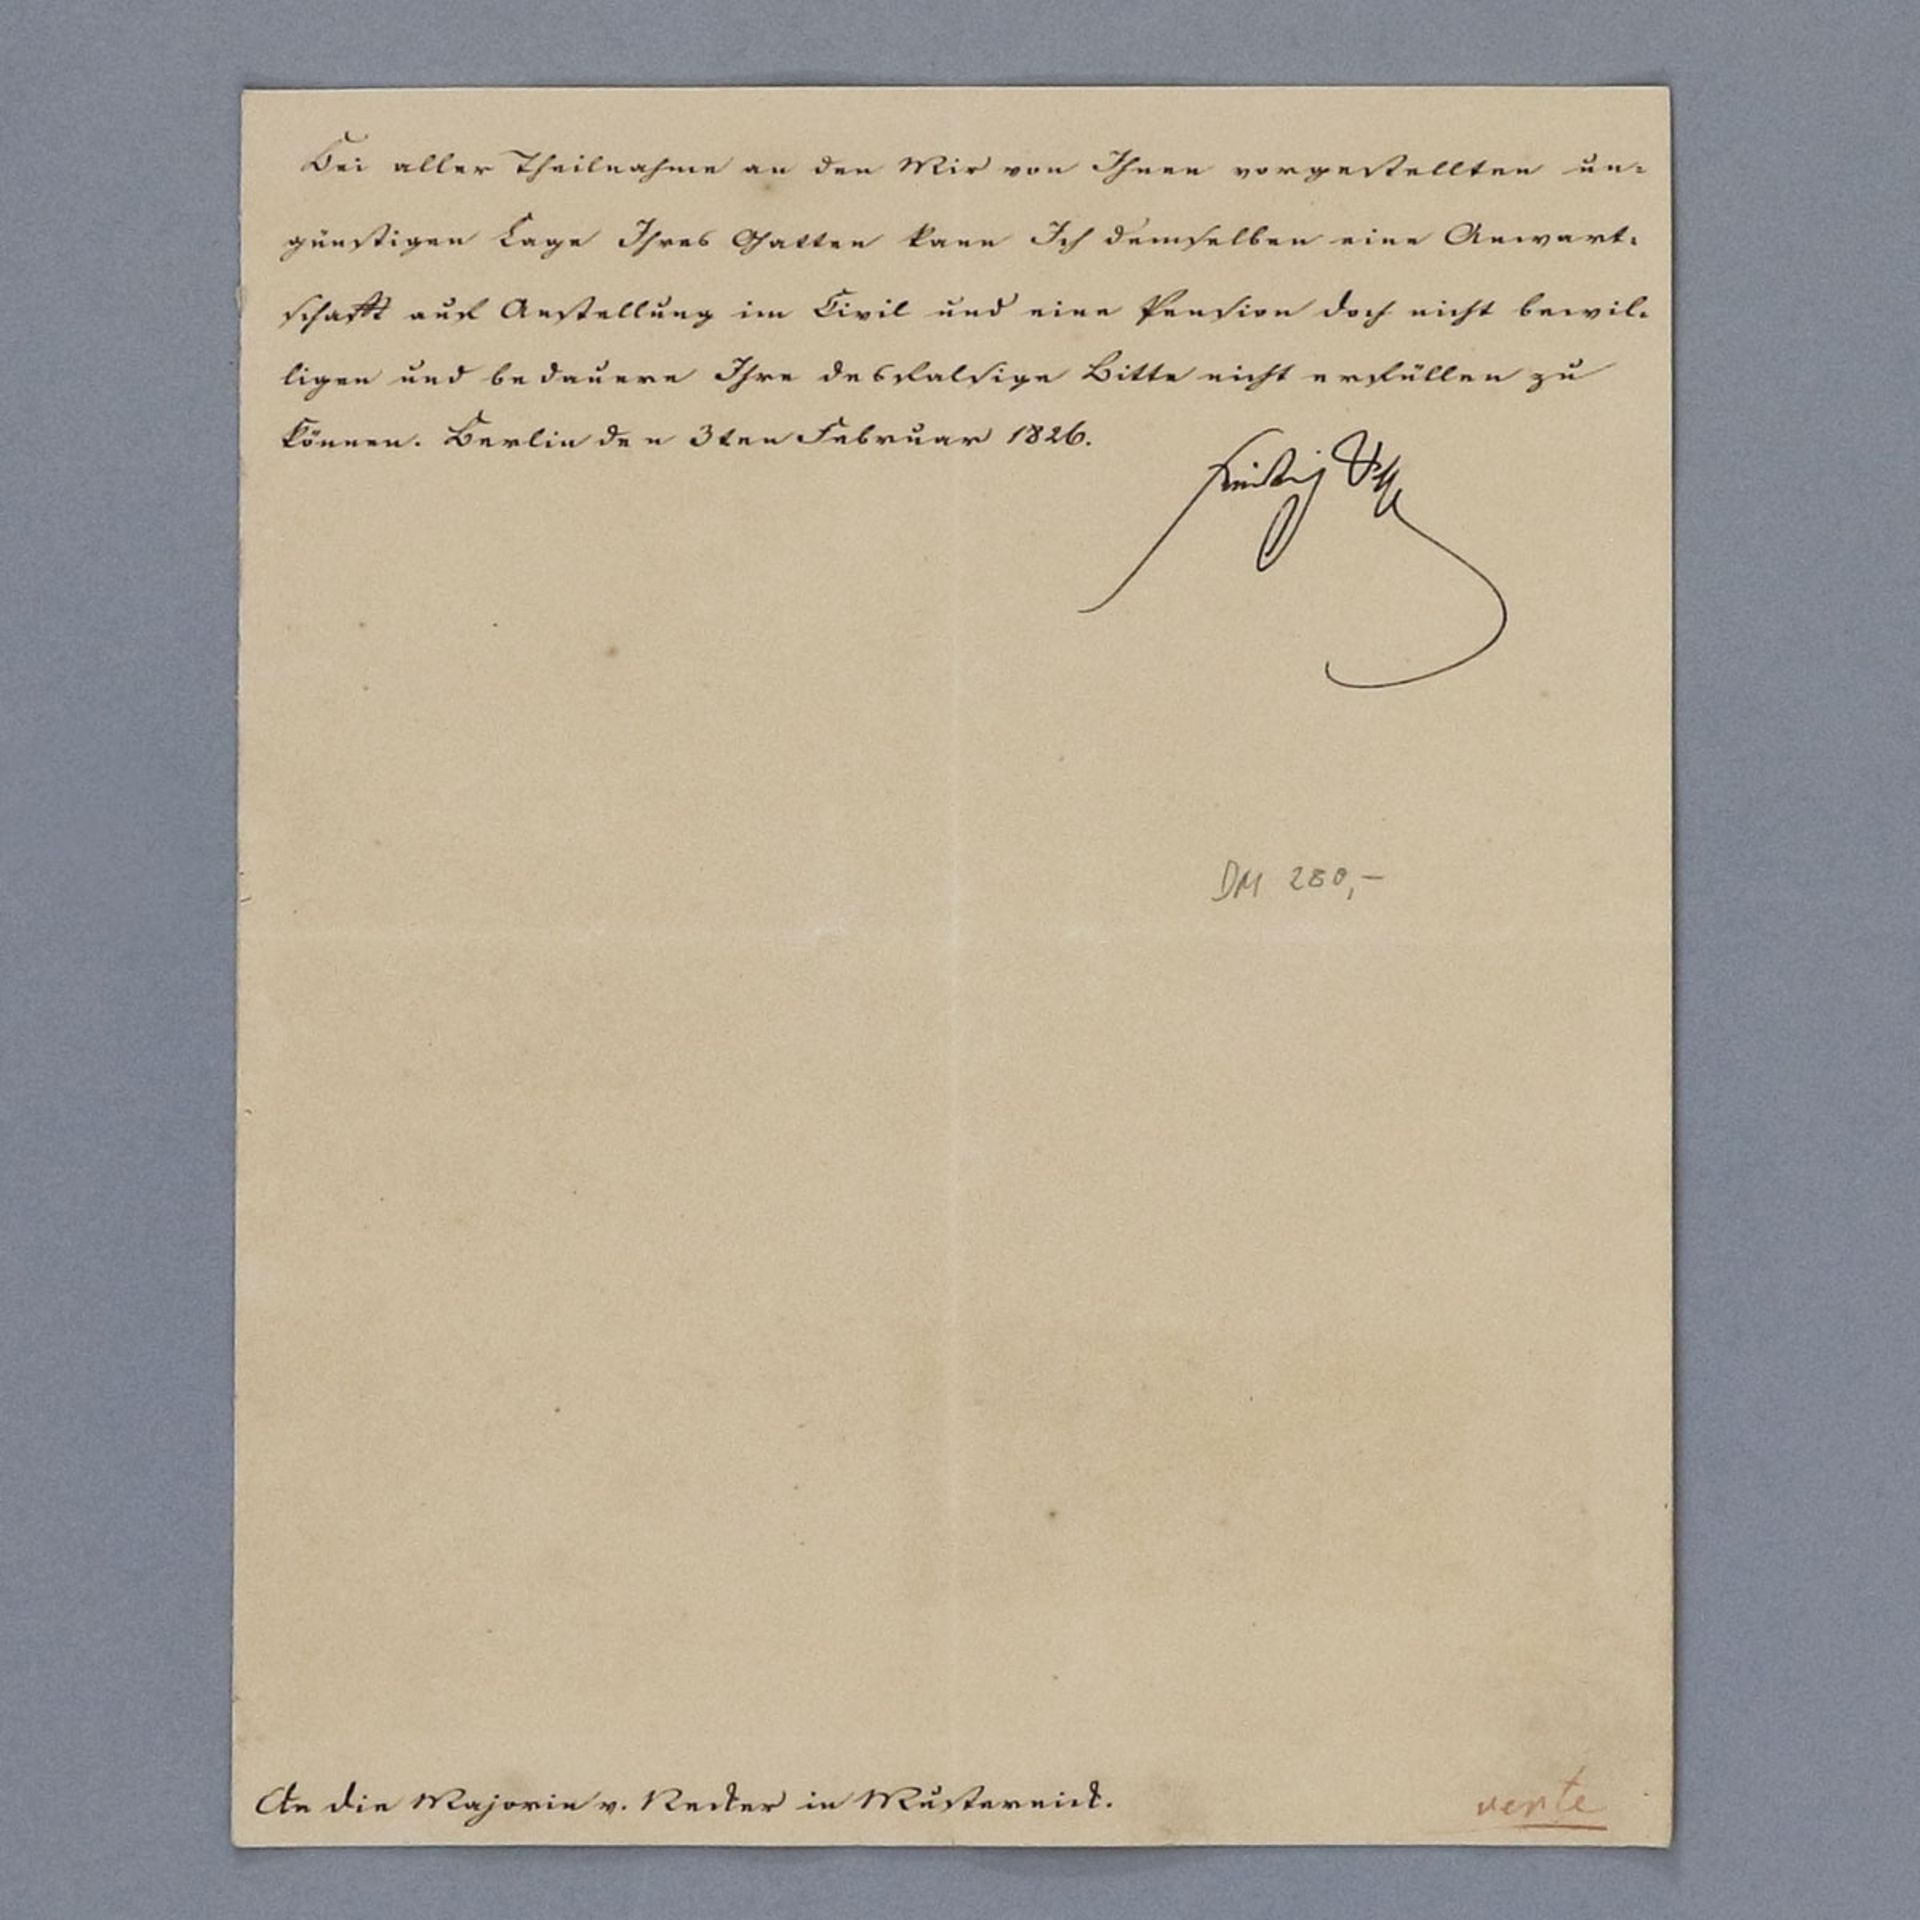 Bei aller Theilnahme an den Mir von Ihnen vorgestellten un-
günstigen Lage Ihres Gatten kann Ich demselben eine Anwart-
schafft auf Anstellung im Civil und eine Pension doch nicht bewil-
ligen und bedauere Ihre desfalsige Bitte nicht erfüllen zu
können. Berlin den 3ten Februar 1826.
Friedrich Wilhelm
DM 280,-
An die Majorin v. Recker in
vente